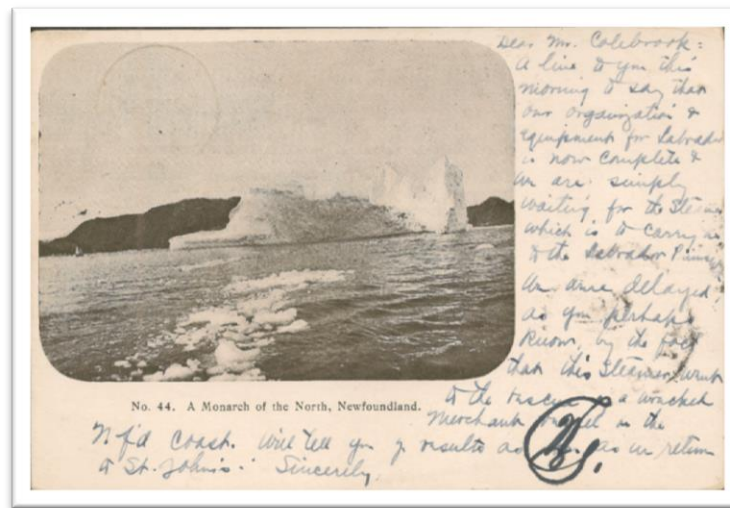 Dear Mr. Colebrook:
A line to you this
morning to say that
our organization &
equipment for Labrador
is now complete &
we are simply
waiting for the Steamer
which is to carry us
to the Labrador
We are delayed,
as you perhaps
know, by the fact
that this Steamer went
to the rescue a wrecked
Merchant vessel on the
Nf'd Coast. Will tell you of results as as we return
to St. John's. Sincerely,
No. 44. A Monarch of the North, Newfoundland.